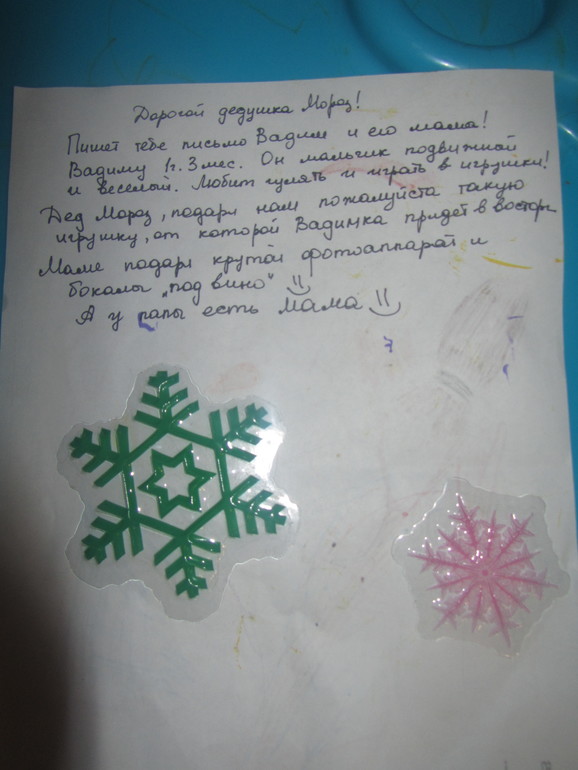 Дорогой дедушка Мороз!
Пишет тебе письмо Вадим и его мама!
Вадиму 1г. 3 мес. Он мальчик подвижной
и веселый. Любит гулять и играть в игрушки!
Дед Мороз, подари нам пожалуйста такую
игрушку, от которой Вадимка придет в восторг
Маме подари крутой фотоаппарат и
бокалы „под вино"
А у папы есть Мама